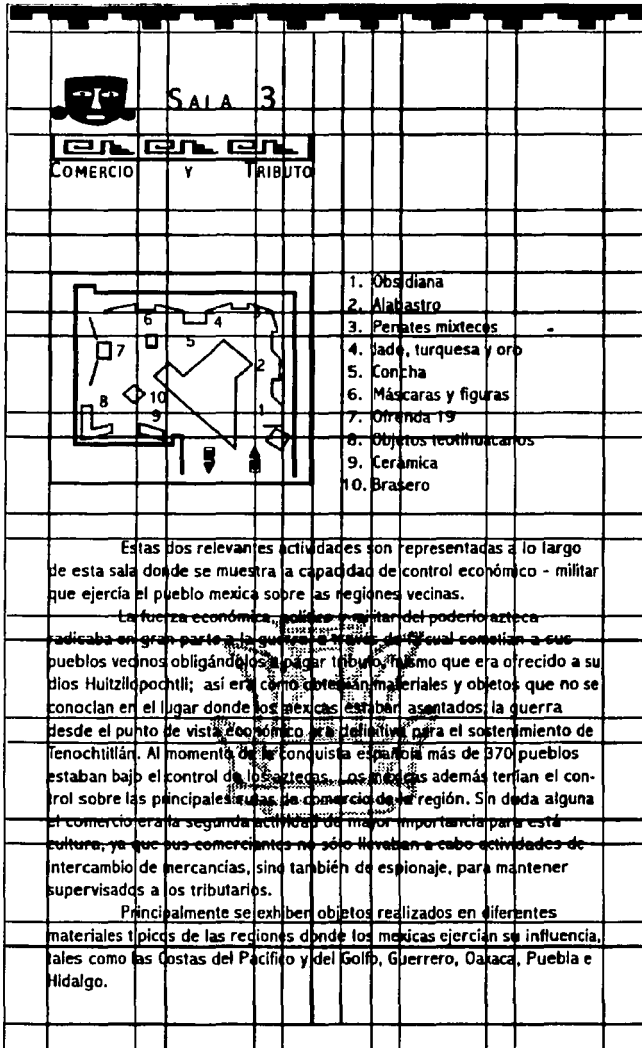 SALA 3
COMERCIO Y TRIBUTO
1. Obsidiana
2. Alabastro
3. Penates mixtecos
4. Jade, turquesa y oro
5. Concha
6. Máscaras y figuras
7. Ofrenda 19
8. Objetos teotihuacanos
9. Cerámica
10. Brasero
6
4
3
5
7
2
8
10
9
1
Estas dos relevantes actividades son representadas a lo largo
de esta sala donde se muestra la capacidad de control económico - militar
que ejercía el pueblo mexica sobre las regiones vecinas.
La fuerza económica, política y militar del poderío azteca
radicaba en gran parte a la guerra a través de la cual sometían a sus
pueblos vecinos obligándolos a pagar tributo, mismo que era ofrecido a su
dios Huitzilopochtli; así era como obtenían materiales y objetos que no se
conocían en el lugar donde los mexicas estaban asentados; la guerra
desde el punto de vista económico era definitiva para el sostenimiento de
Tenochtitlán. Al momento de la conquista española más de 370 pueblos
estaban bajo el control de los aztecas. Los mexicas además tenían el con-
trol sobre las principales rutas de comercio de la región. Sin duda alguna
el comercio era la segunda actividad de mayor importancia para está
cultura, ya que sus comerciantes no sólo llevaban a cabo actividades de
intercambio de mercancías, sino también de espionaje, para mantener
supervisados a los tributarios.
Principalmente se exhiben objetos realizados en diferentes
materiales típicos de las regiones donde los mexicas ejercían su influencia,
tales como las Costas del Pacífico y del Golfo, Guerrero, Oaxaca, Puebla e
Hidalgo.